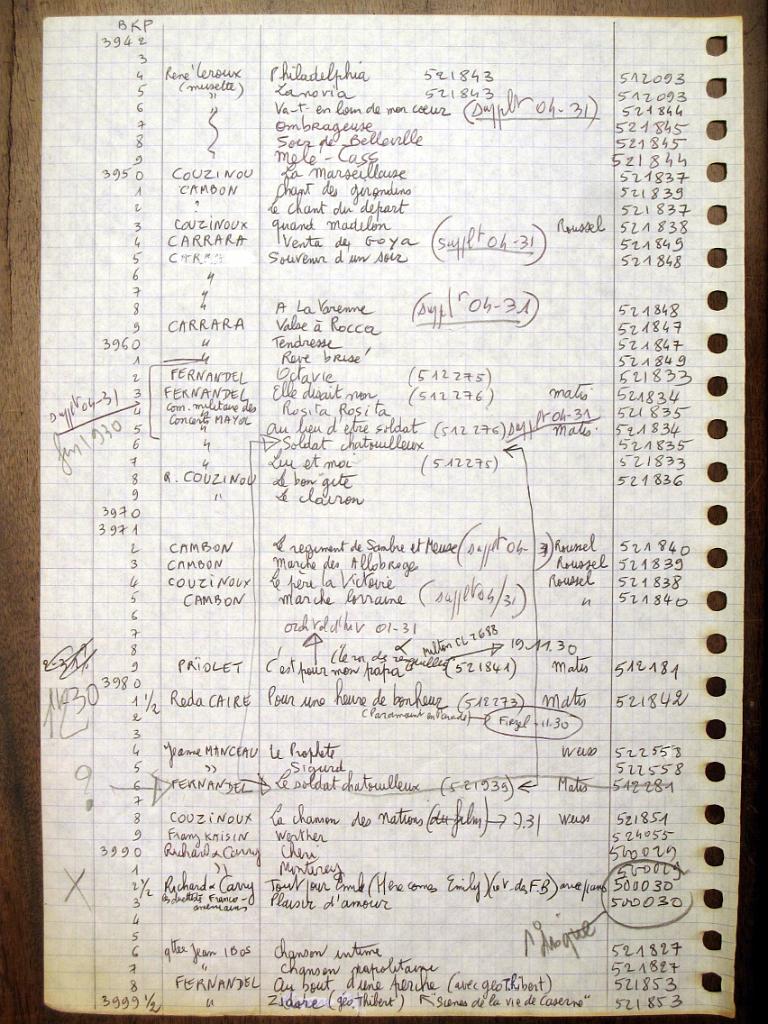 BKP
3942
3
4 René Leroux Philadelphia 521843 512093
5 (musette) Zanovia 521843 512093
6 " Va-t-en loin de mon cœur (Supplt 04-31) 521844
7 Ombrageuse 521845
8 Soir de Belleville 521845
9 Mele-Cass 521844
3950 COUZINOU La Marseillaise 521837
1 CAMBON Chant des girondins 521839
2 " Le chant du départ 521837
3 COUZINOUX quand madelon Roussel 521838
4 CARRARA Venta de Goya (supplt 04-31) 521849
5 Souvenir d'un soir 521848
6 "
7 "
8 " A La Varenne (supplt 04-31) 521848
9 CARRARA Valse à Rocca 521847
3960 " Tendresse 521847
1 " Reve brisé 521849
2 FERNANDEL Octavie (512275) 521833
supplt 04-31
3 FERNANDEL Elle disait non (512276) matis 521834
4 com. militaire des Rosita Rosita 521835
5 Concerts MAYOL " au lieu d'etre soldat (512276) Supplt 04-31 Matis 521834
1930
6 " Soldat chatouilleux 521835
7 " Lui et moi (512275) 521833
8 R. COUZINOU Le bon gîte 521836
9 " Le clairon
3970
3971
2 CAMBON Le regiment de Sambre et Meuse (supplt 04-31) Roussel 521840
3 CAMBON Marche des Allobroges Roussel 521839
4 COUZINOUX Le père la Victoire Roussel 521838
5 CAMBON Marche lorraine (supplt 04/31) " 521840
6
7 01-31
8 milton CL 2688 19.11.30
9 PRIOLET C'est pour mon papa (521841) Matis 512181
3980
11-30
1 1/2 Reda CAIRE Pour une heure de bonheur (512273) Matis 521842
2 (Paramount en Parade) Firzel-11.30
3
4 Jeanne MANCEAU Le Prophete Weiss 522558
5 " Sigurd 522558
? 6 FERNANDEL Le soldat chatouilleux (521939) Matis 512281
7
8 COUZINOUX La chanson des nations (du film) 7.31 Weiss 521851
9 Franz KAISIN Werther 524055
3990 Richard & Carry Cheri 500029
1 " Monterey 500029
X 2 1/2 Richard & Carry Tout pour Emile (Here comes Emily) avec piano 500030
3 duettistes Franco-américains Plaisir d'amour 500030
4
5 1 disque
6 qtor Jean IBOS Chanson intime 521827
7 " Chanson napolitaine 521827
8 FERNANDEL Au bout d'une perche (avec géo Thibert) 521853
3999 1/2 " Zidore (géo. Thibert) "Scènes de la vie de Caserne" 521853